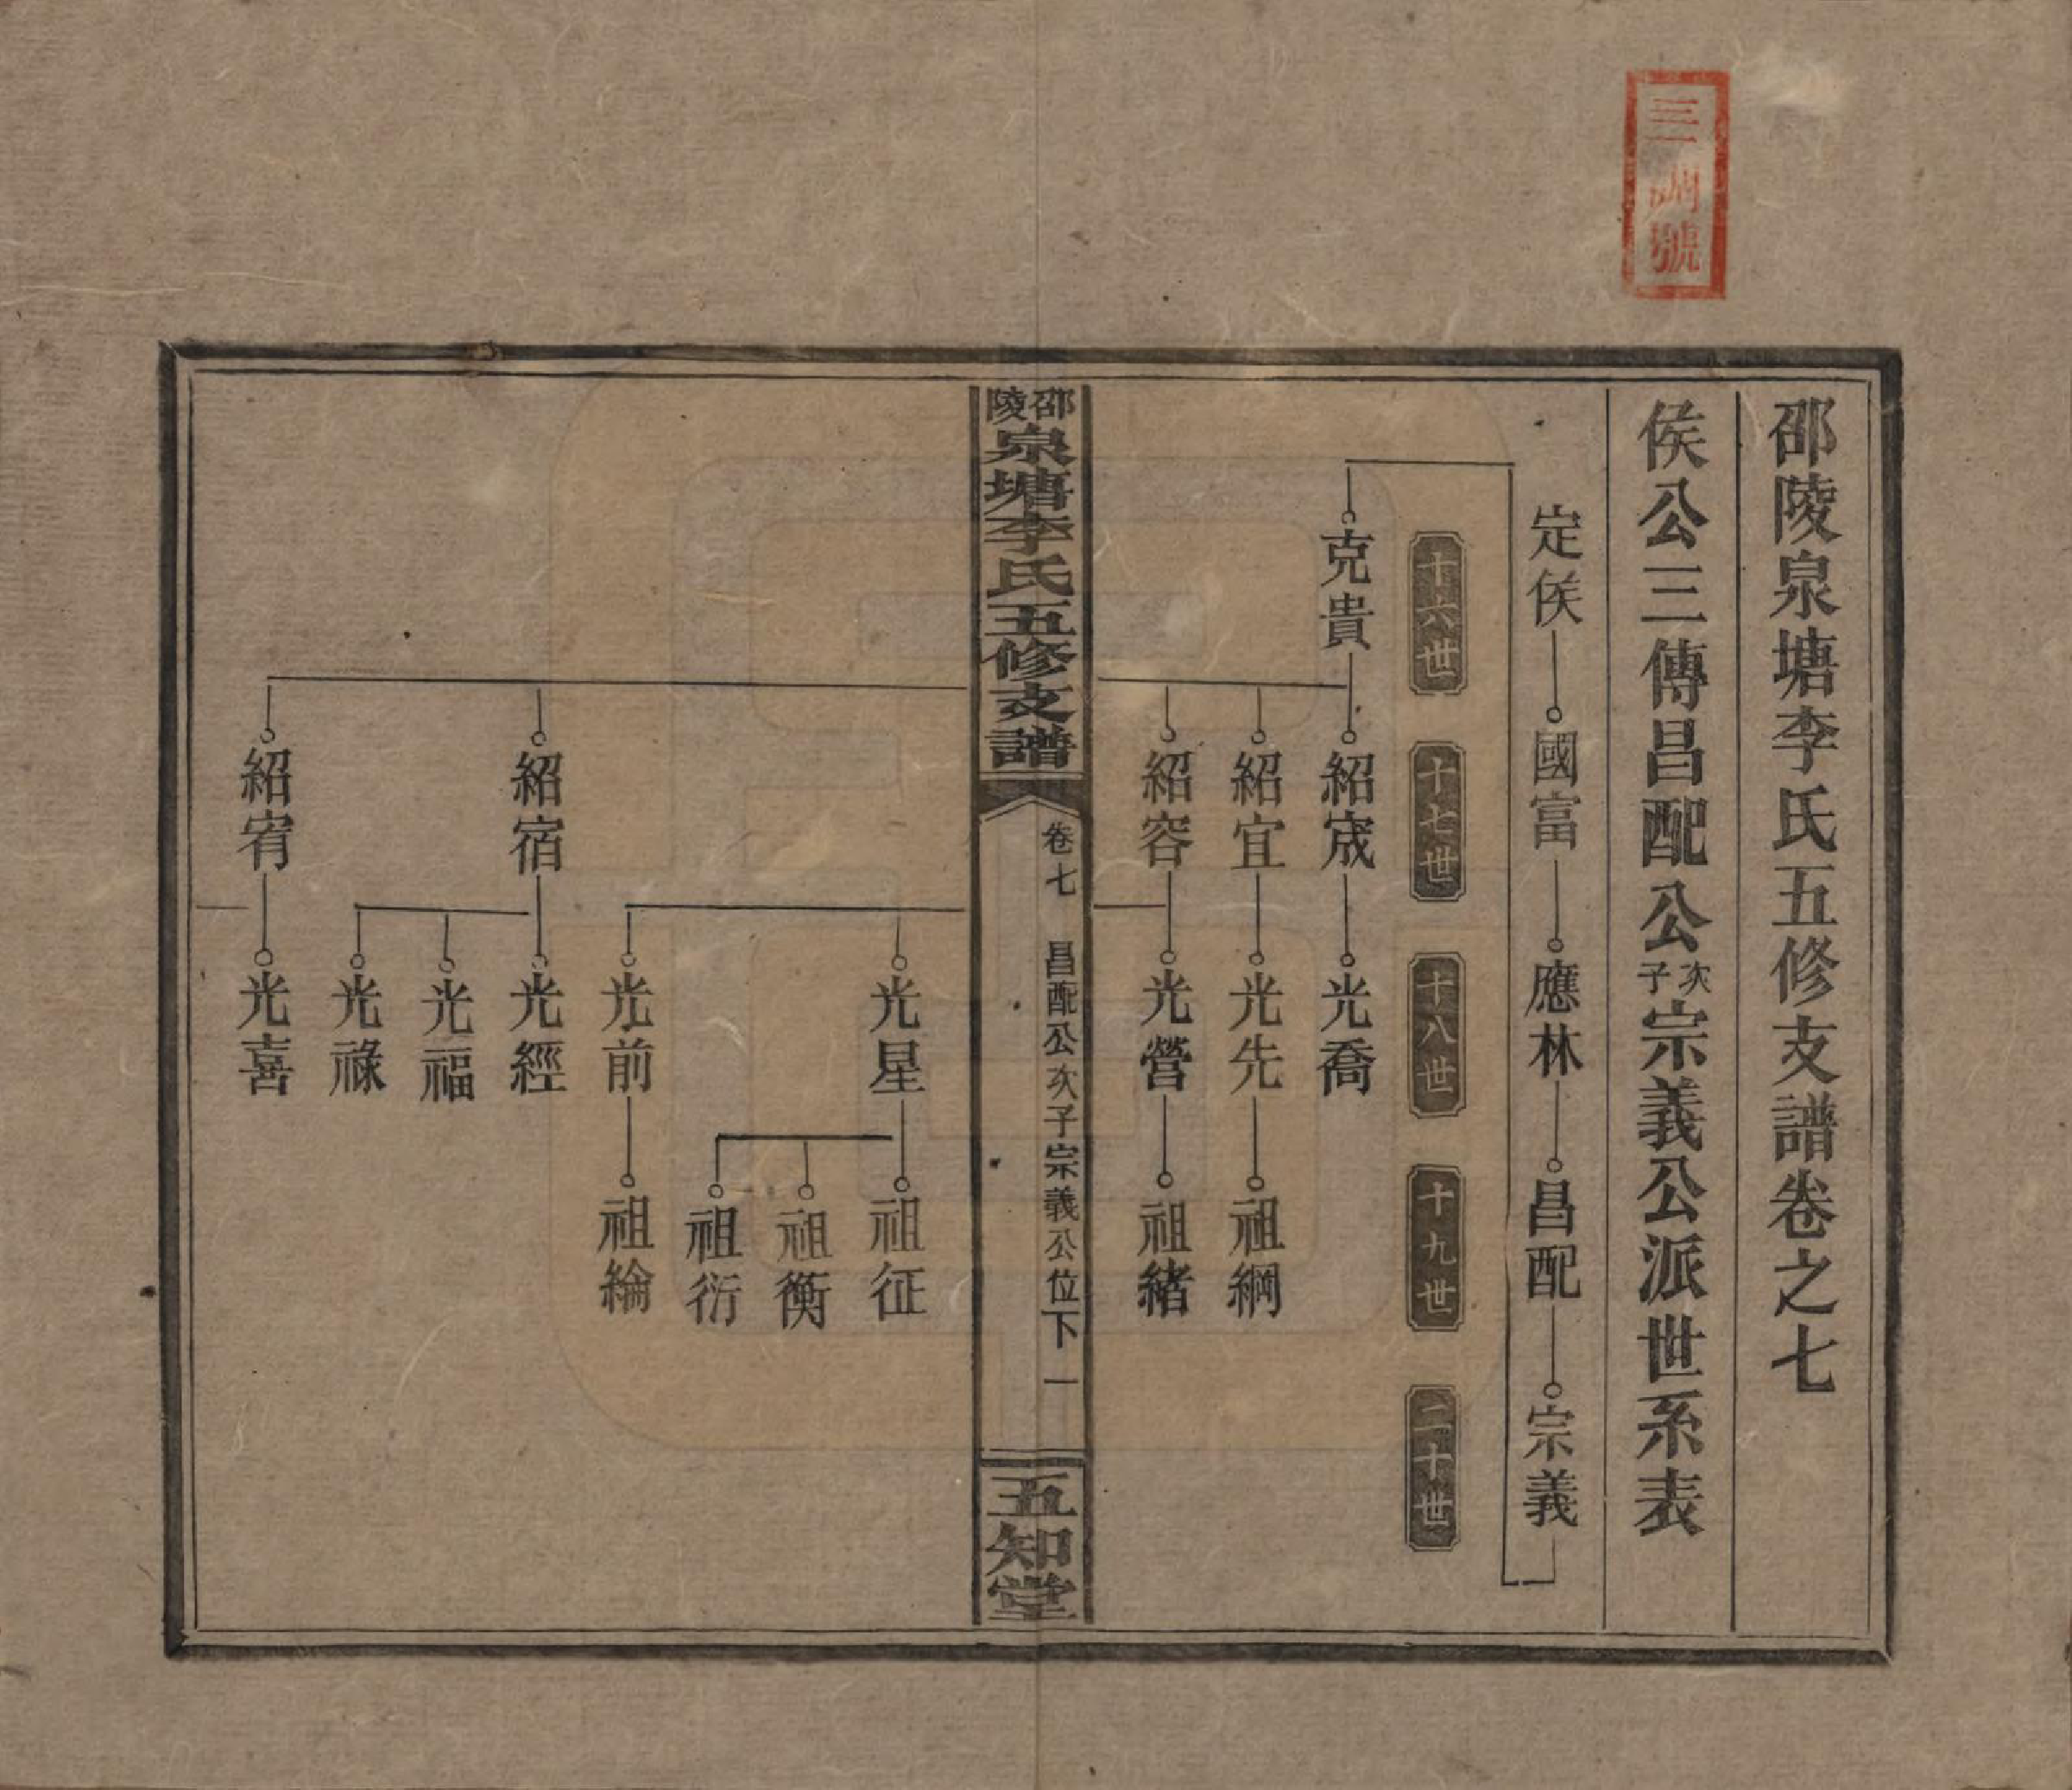 三調號
邵陵泉塘李氏五修支譜卷之七
侯公三傳昌配公次子宗義公派世系表
定侯 國富 應林 昌配 宗義
十六世 十七世 十八世 十九世 二十世
克貴 紹宬 光喬
紹宜 光先 祖綱
紹容 光營 祖緒
邵陵泉塘李氏五修支譜 卷七 昌配公次子宗義公位下 一 五知堂
光星 祖征
祖衡
祖衍
光前 祖綸
紹宿 光經
光福
光祿
紹宥 光喜